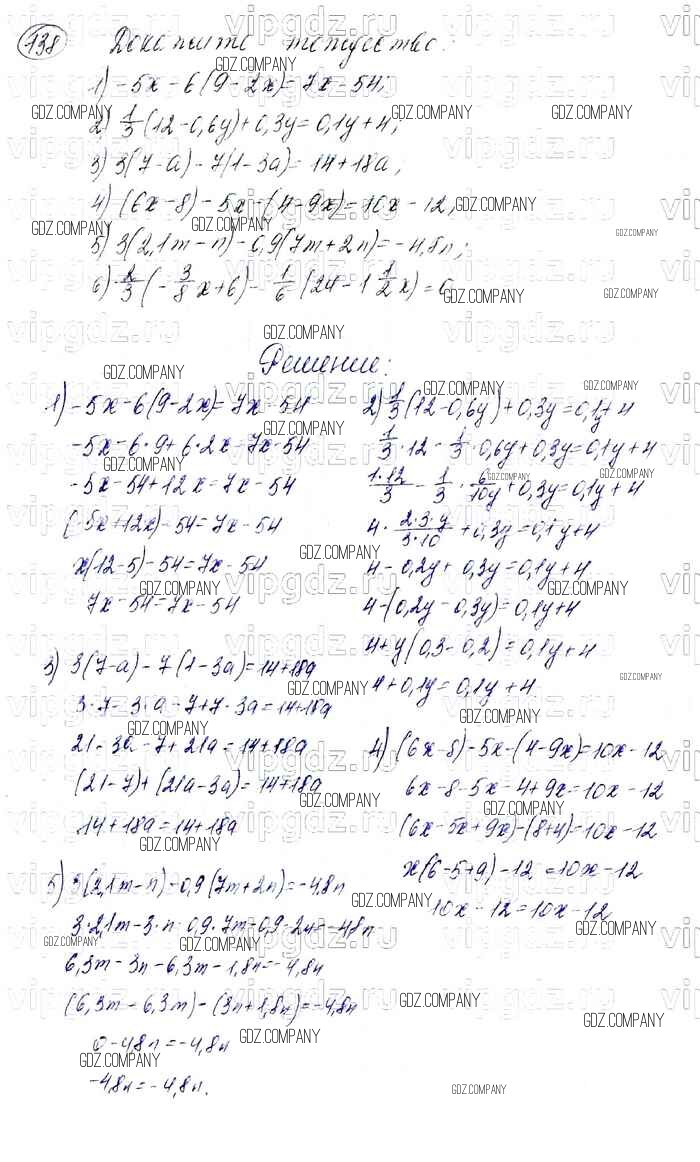 138 Докажите тождество:
1) -5x - 6(9 - 2x) = 7x - 54;
2) 1/3 (12 - 0,6y) + 0,3y = 0,1y + 4;
3) 3(7 - a) - 7(1 - 3a) = 14 + 18a;
4) (6x - 8) - 5x - (4 - 9x) = 10x - 12;
5) 3(2,1m - n) - 0,9(7m + 2n) = -4,8n;
6) 2/3 (-3/8 x + 6) - 1/6 (24 - 1 1/2 x) = 0
Решение:
1) -5x - 6(9 - 2x) = 7x - 54
-5x - 6·9 + 6·2x = 7x - 54
-5x - 54 + 12x = 7x - 54
(-5x + 12x) - 54 = 7x - 54
x(12 - 5) - 54 = 7x - 54
7x - 54 = 7x - 54
2) 1/3 (12 - 0,6y) + 0,3y = 0,1y + 4
1/3 · 12 - 1/3 · 0,6y + 0,3y = 0,1y + 4
1·12/3 - 1/3 · 6/10y + 0,3y = 0,1y + 4
4 · 2·3·y/3·10 + 0,3y = 0,1y + 4
4 - 0,2y + 0,3y = 0,1y + 4
4 - (0,2y - 0,3y) = 0,1y + 4
4 + y(0,3 - 0,2) = 0,1y + 4
4 + 0,1y = 0,1y + 4
3) 3(7 - a) - 7(1 - 3a) = 14 + 18a
3·7 - 3·a - 7 + 7·3a = 14 + 18a
21 - 3a - 7 + 21a = 14 + 18a
(21 - 7) + (21a - 3a) = 14 + 18a
14 + 18a = 14 + 18a
4) (6x - 8) - 5x - (4 - 9x) = 10x - 12
6x - 8 - 5x - 4 + 9x = 10x - 12
(6x - 5x + 9x) - (8 + 4) = 10x - 12
x(6 - 5 + 9) - 12 = 10x - 12
10x - 12 = 10x - 12
5) 3(2,1m - n) - 0,9(7m + 2n) = -4,8n
3·2,1m - 3·n - 0,9·7m - 0,9·2n = -4,8n
6,3m - 3n - 6,3m - 1,8n = -4,8n
(6,3m - 6,3m) - (3n + 1,8n) = -4,8n
0 - 4,8n = -4,8n
-4,8n = -4,8n.
vipgdz.ru
GDZ.COMPANY